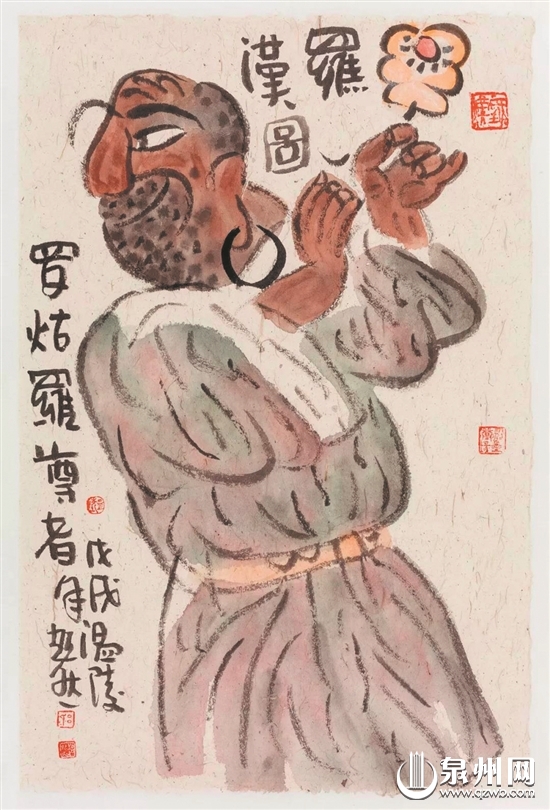 羅
漢
圖
罗怙羅尊者
戊戌温陵
泉州网
www.qzwb.com